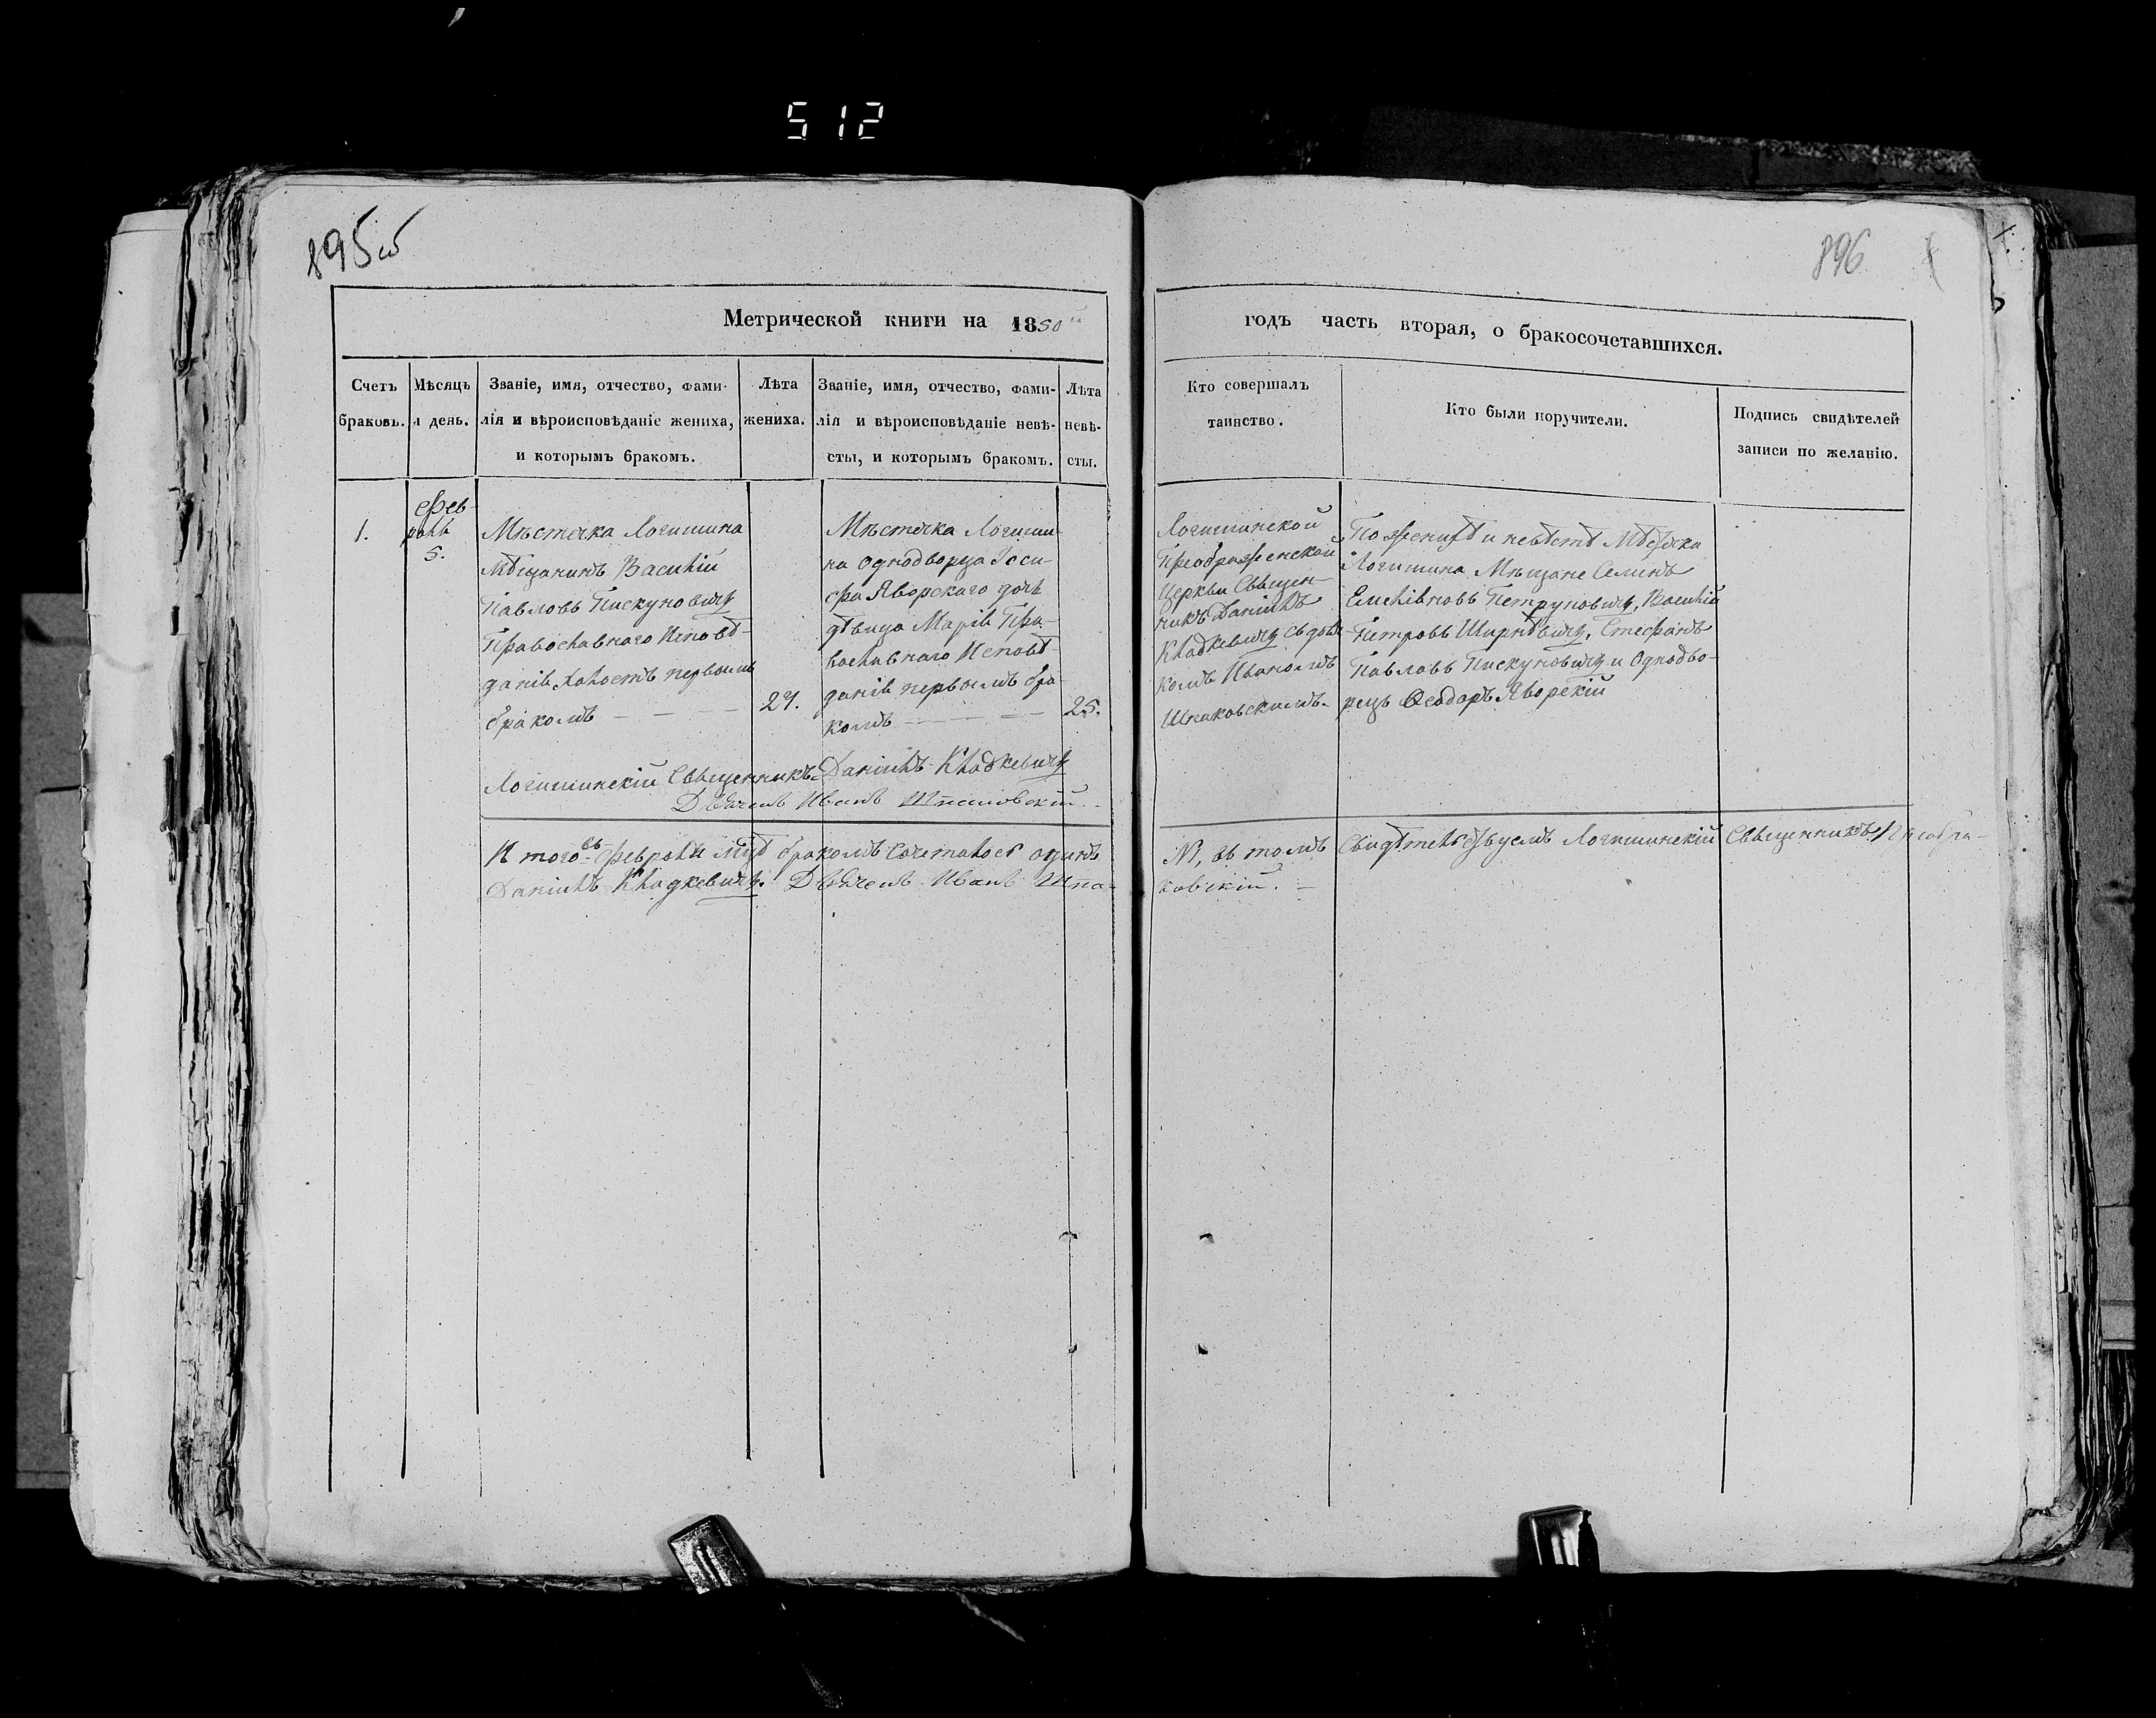 512
895об
896
Метрической книги на 1850
годъ часть вторая, о бракосочетавшихся.
Счетъ
браковъ.
Мѣсяцъ
и день.
Званіе, имя, отчество, фами-
лія и вѣроисповѣданіе жениха,
и которымъ бракомъ.
Лѣта
жениха.
Званіе, имя, отчество, фами-
лія и вѣроисповѣданіе невѣ-
сты, и которымъ бракомъ.
Лѣта
невѣ-
сты.
Кто совершалъ
таинство.
Кто были поручители.
Подпись свидѣтелей
записи по желанію.
1.
Фев-
раль
5.
Мѣстечка Логишина
Мѣщанинъ Василій
Павловъ Пискуновичъ
Православнаго Исповѣ-
данія Холостъ первымъ
бракомъ
27.
Мѣстечка Логиши-
на однодворца Іоси-
фа Яворскаго дочь
дѣвица Марія Пра-
вославнаго Исповѣ-
данія первымъ бра-
комъ
25.
Логишинской
Преображенской
Церкви Священ-
никъ Даніилъ
Кладкевичъ съ дьяч-
комъ Иваномъ
Шпаковскимъ.
По женихѣ и невѣстѣ Мѣстечка
Логишина Мѣщане Семенъ
Петруновичъ, Василій
Петровъ Стефанъ
Павловъ Пискуновичъ и Однодво-
рецъ Ѳеодоръ Яворскій
Логишинскій Священникъ Даніилъ Кладкевичъ
Дьячекъ Иванъ Шпаковскій.
Итого въ Февралѣ бракомъ сочеталось одинъ
№ 1, въ томъ Свидѣтельствуемъ Логишинскій Священникъ
Даніилъ Кладкевичъ. Дьячекъ Иванъ Шпа-
ковскій.